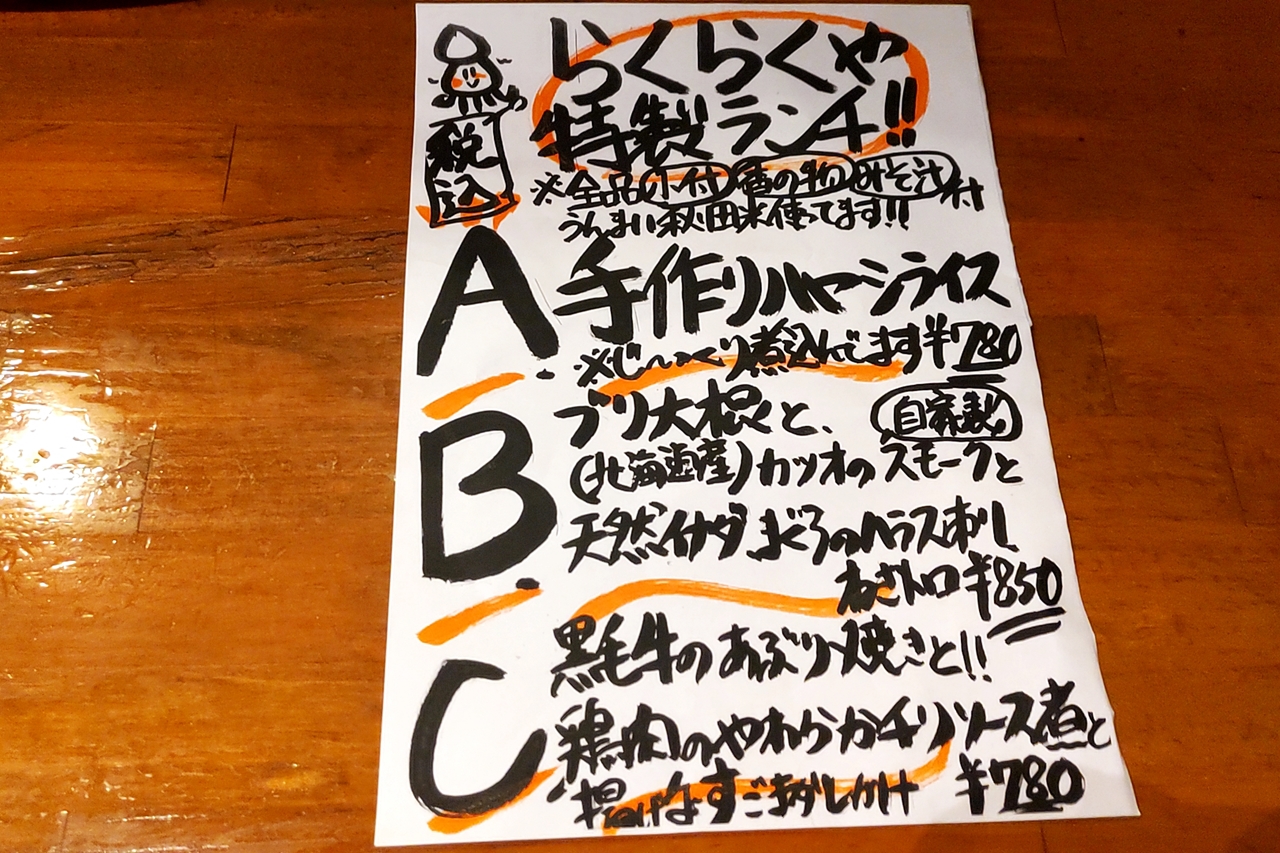 らくらくや
特製ランチ!!
税込
※全品小付香の物みそ汁付
うんまい秋田米使ってます!!
A. 手作りハヤシライス
※じ〜っくり煮込んでます¥780
B. ブリ大根と、自家製
(北海道産)カツオのスモークと
天然イナダまぐろのハラス刺し
ねぎトロ¥850
C. 黒毛牛のあぶり焼きと!!
鶏肉のやわらかチリソース煮と
揚げなすごまだしかけ ¥780